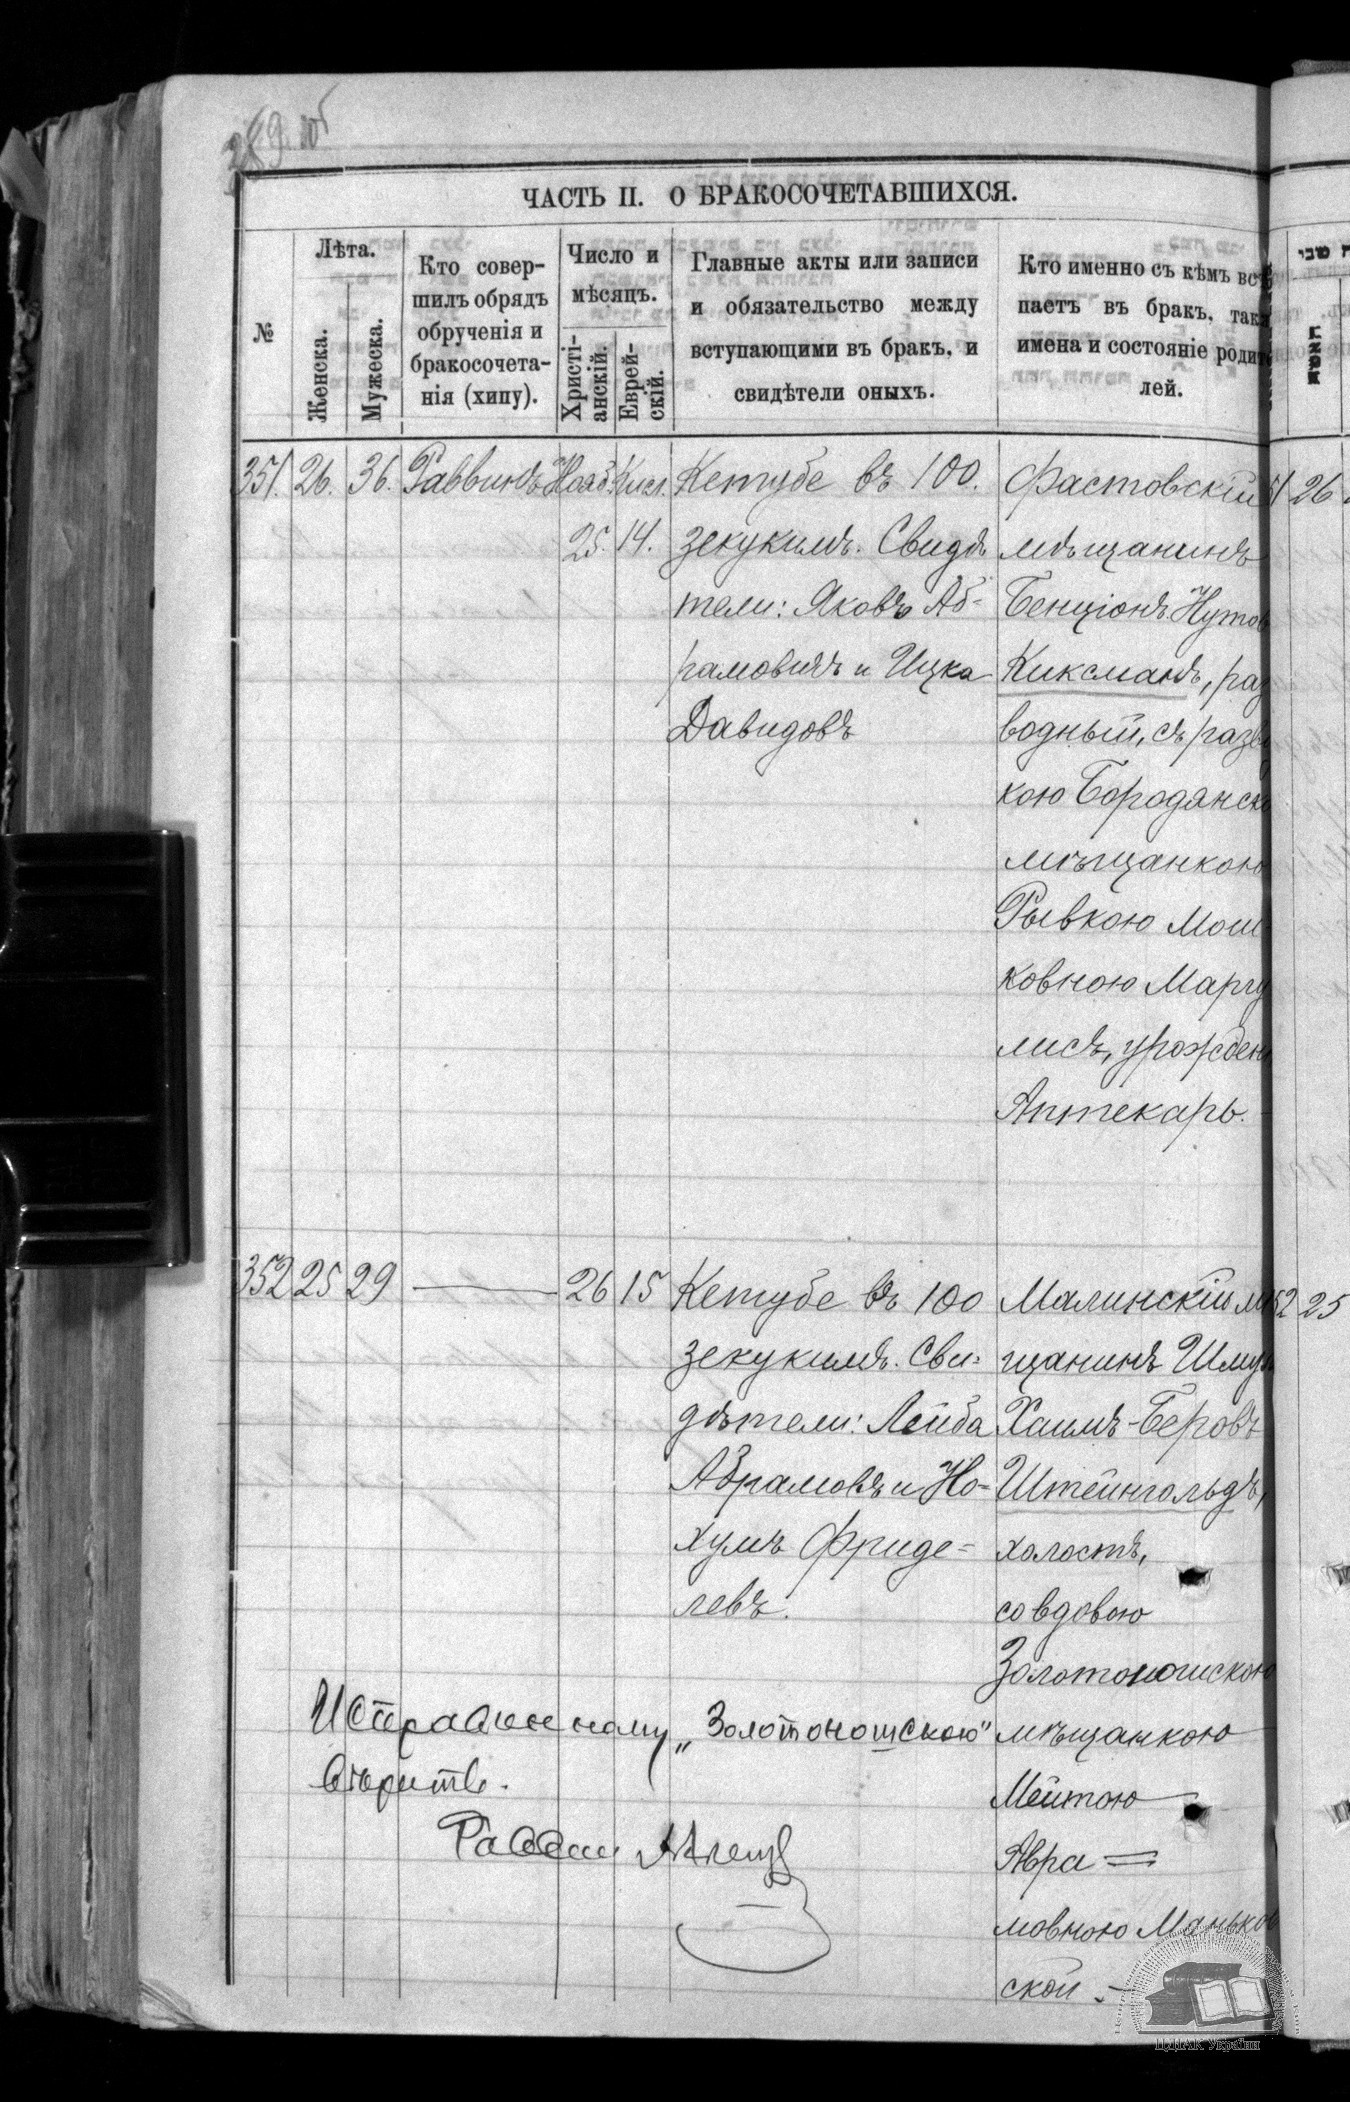 ЧАСТЬ II. О БРАКОСОЧЕТАВШИХСЯ.
№
Лѣта.
Женска.
Мужеска.
Кто совер-
шилъ обрядъ
обрученія и
бракосочета-
нія (хипу).
Число и
мѣсяцъ.
Христі-
анскій.
Еврей-
скій.
Главные акты или записи
и обязательство между
вступающими въ бракъ, и
свидѣтели оныхъ.
Кто именно съ кѣмъ всту
паетъ въ бракъ, такж
имена и состояніе родите
лей.
351. 26. 36. Раввинъ Нояб. Кисл.
25. 14.
Кетубе въ 100.
зекукимъ. Свидѣ
тели: Яковъ Аб-
рамовичъ и Ицка
Давидовъ
Фастовскій
мѣщанинъ
Бенціонъ Нутов
Киксманъ, раз
водный, съ разво
кою Бородянск
мѣщанкою
Рывкою Мош
ковною Маргу
лисъ, урожден
Аптекарь.
352 25 29 — 26 15
Кетубе въ 100
зекукимъ. Сви-
дѣтели: Лейба
Абрамовъ и Но-
хумъ Фриде-
левъ.
Малинскій мѣ
щанинъ Шмул
Хаимъ-Беровъ
Штейнгольдъ,
холостъ,
со вдовою
Золотоношскою
мѣщанкою
Мейтою
Авра=
мовною Маньков
ской.-
Исправленному „Золотоношскою"
вѣрить.
Раввин
51 26
52 25
ЦДІАК України